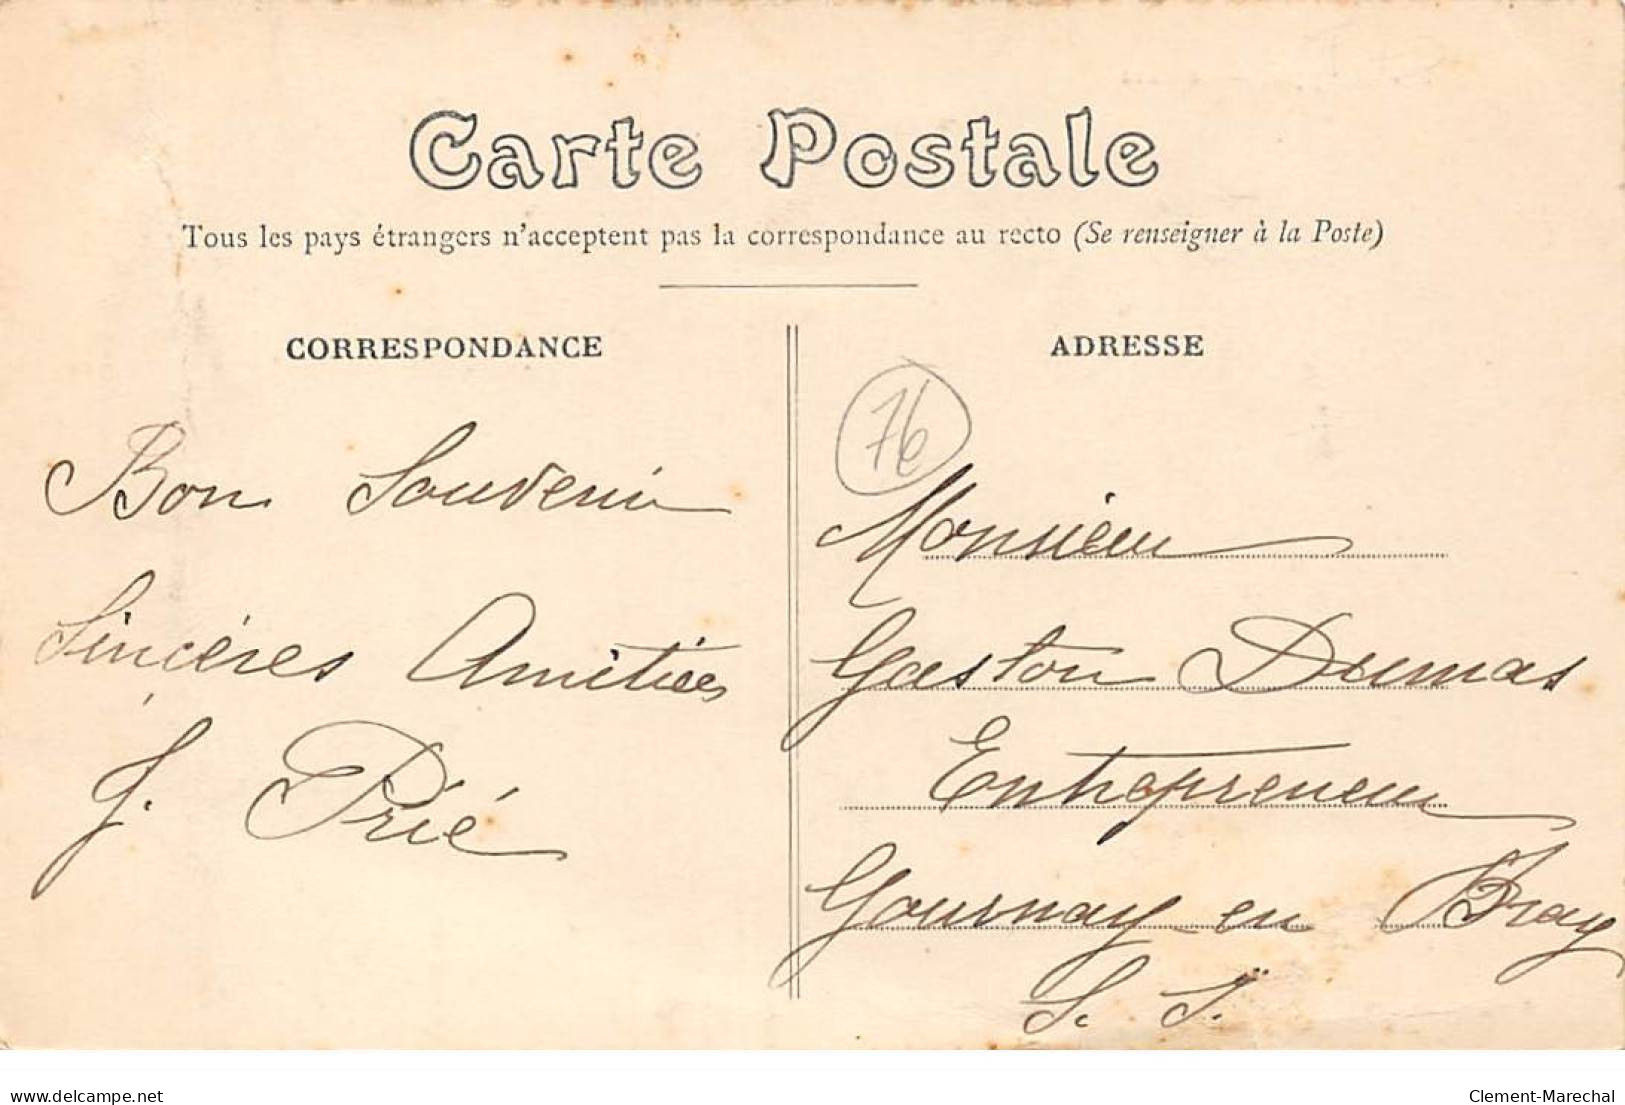 Carte Postale
Tous les pays étrangers n'acceptent pas la correspondance au recto (Se renseigner à la Poste)
CORRESPONDANCE
Bon Souvenir
Sincères Amitiées
J. Prié
ADRESSE
76
Monsieur
Gaston Dumas
Entrepreneur
Gournay en Bray
S. I.
delcampe.net
Clement-Marechal